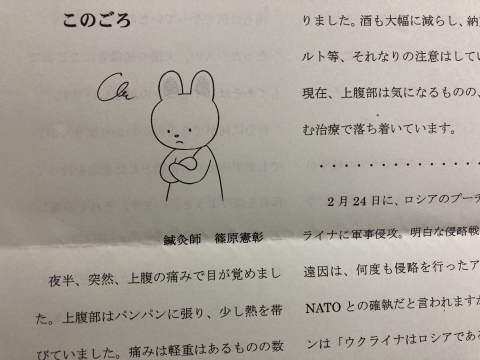 このごろ
鍼灸師 篠原憲彰
夜半、突然、上腹の痛みで目が覚めまし
た。上腹部はパンパンに張り、少し熱を帯
びていました。痛みは軽重はあるものの数
りました。酒も大幅に減らし、納
ルト等、それなりの注意はしてい
現在、上腹部は気になるものの、
む治療で落ち着いています。
・・・・・・・・・・・・・・
2月24日に、ロシアのプーチ
ライナに軍事侵攻。明白な侵略戦
遠因は、何度も侵略を行ったア
NATOとの確執だと言われますが
ンは「ウクライナはロシアであ